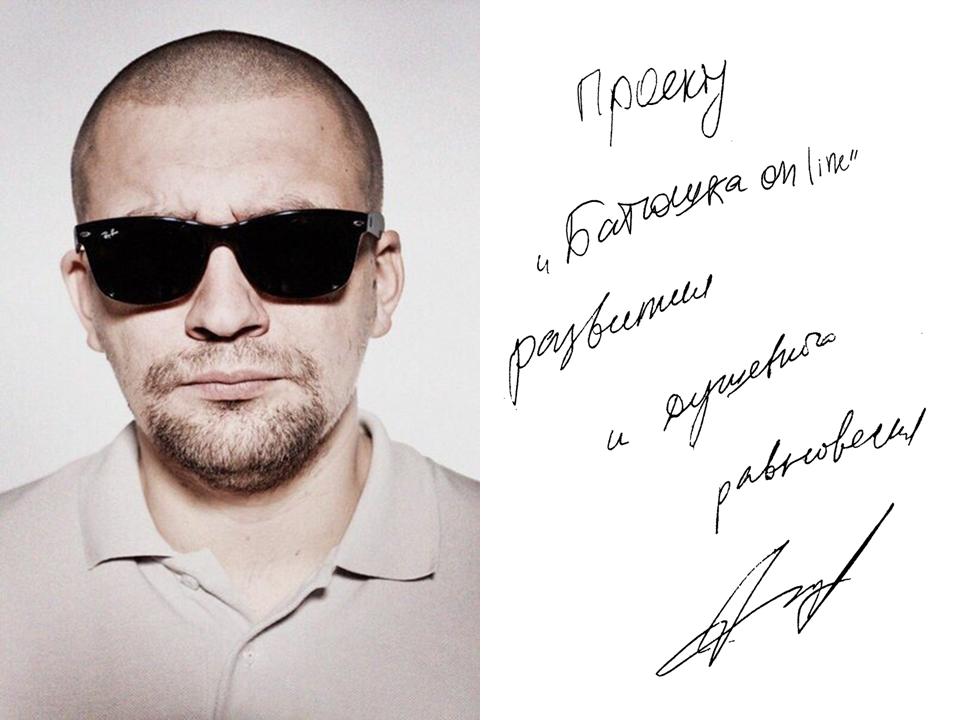 Ray-Ban
Проекту
"Батюшка online"
развития
и душевного
равновесия